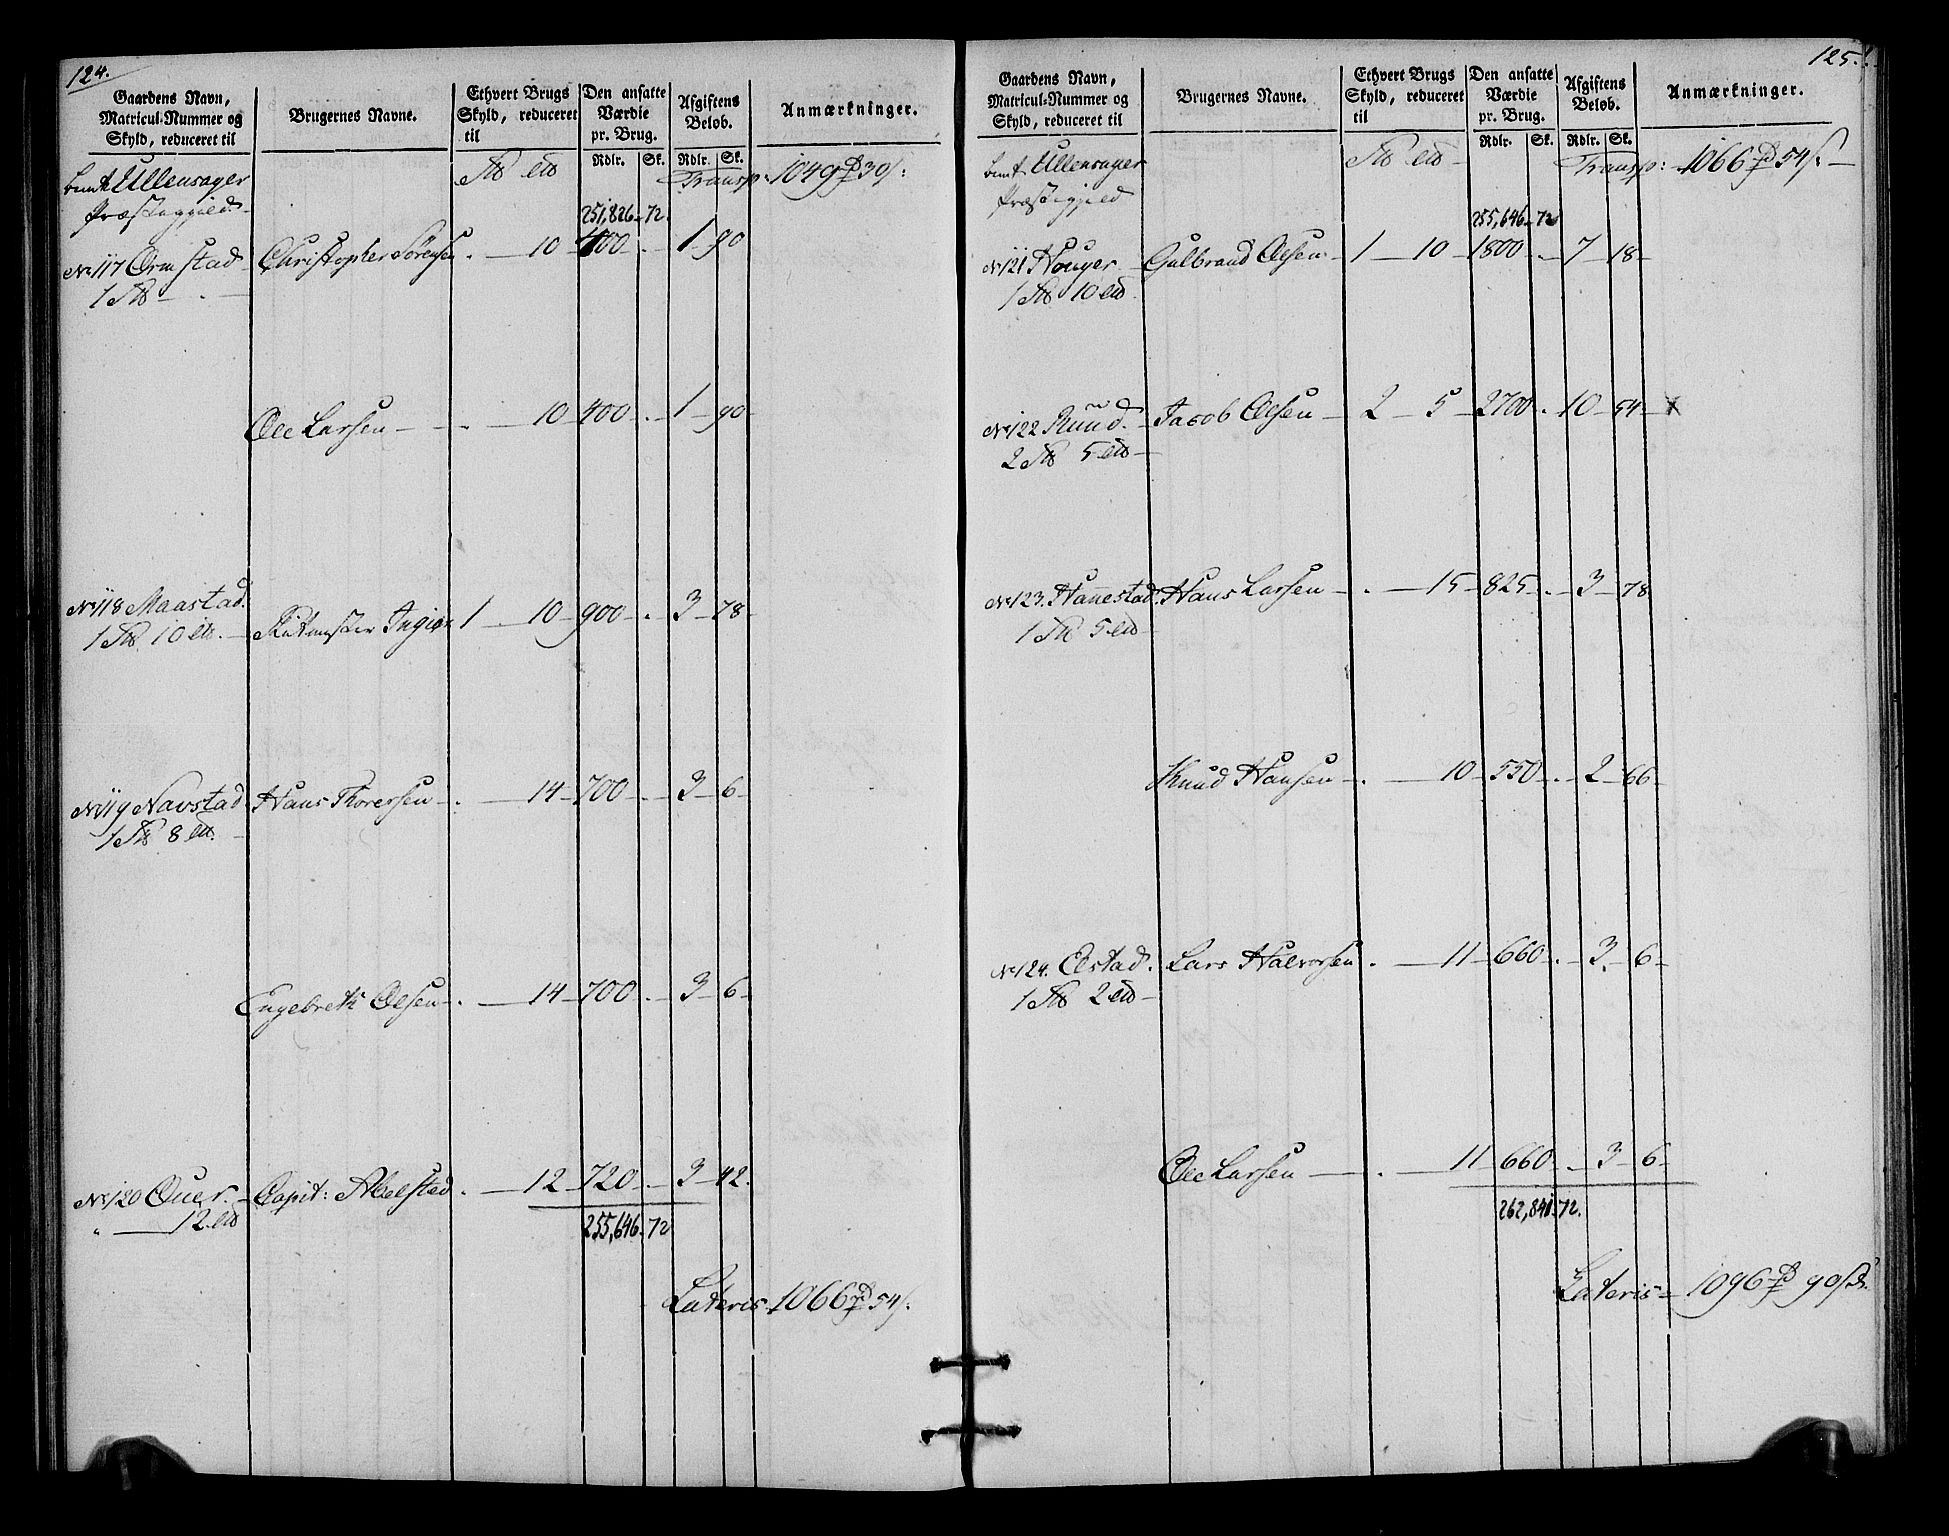 124.
Gaardens Navn, Matricul-Nummer og Skyld, reduceret til | Brugernes Navne. | Ethvert Brugs Skyld, reduceret til | Den ansatte Værdie pr. Brug. Rdlr. Sk. | Afgiftens Beløb. Rdlr. Sk. | Anmærkninger.
Ullensager Transp: 1049 30
Præstegield
251,826 72.
No 117 Ormstad Christopher Sørensen . 10 400 . 1 90
1
Ole Larsen . 10 400 . 1 90
No 118 Maastad. 1 10 900 . 3 78
1 10
No 119 Navstad Hans Thorersen . 14 700 . 3 6
1 8
Engebreth Olsen . 14 700 . 3 6
No 120 Quer. Capit: Abelsted . 12 720 . 3 42.
" 12
255,646. 72
Lateris 1066 54
125.
Gaardens Navn, Matricul-Nummer og Skyld, reduceret til | Brugernes Navne. | Ethvert Brugs Skyld, reduceret til | Den ansatte Værdie pr. Brug. Rdlr. Sk. | Afgiftens Beløb. Rdlr. Sk. | Anmærkninger.
Ullensager Transp: 1066 54
Præstegjeld
255,646 72
No 121 Houger Gulbrand Olsen 1 10 1800 . 7 18
1 10
No 122 Ruud. Jacob Olsen 2 5 2700 . 10 54 x
2 5
No 123. Hannestad. Hans Larsen . 15 825 . 3 78
1 5
Knud Hansen . 10 550 . 2 66
No 124. Elstad. Lars Halvorsen . 11 660 . 3 6
1 2
Ole Larsen . 11 660 . 3 6
262,841. 72.
Lateris 1096 90